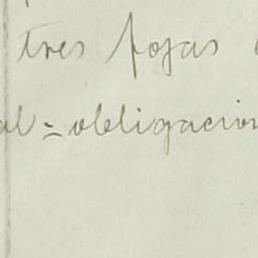 tres fojas
al = obligacion